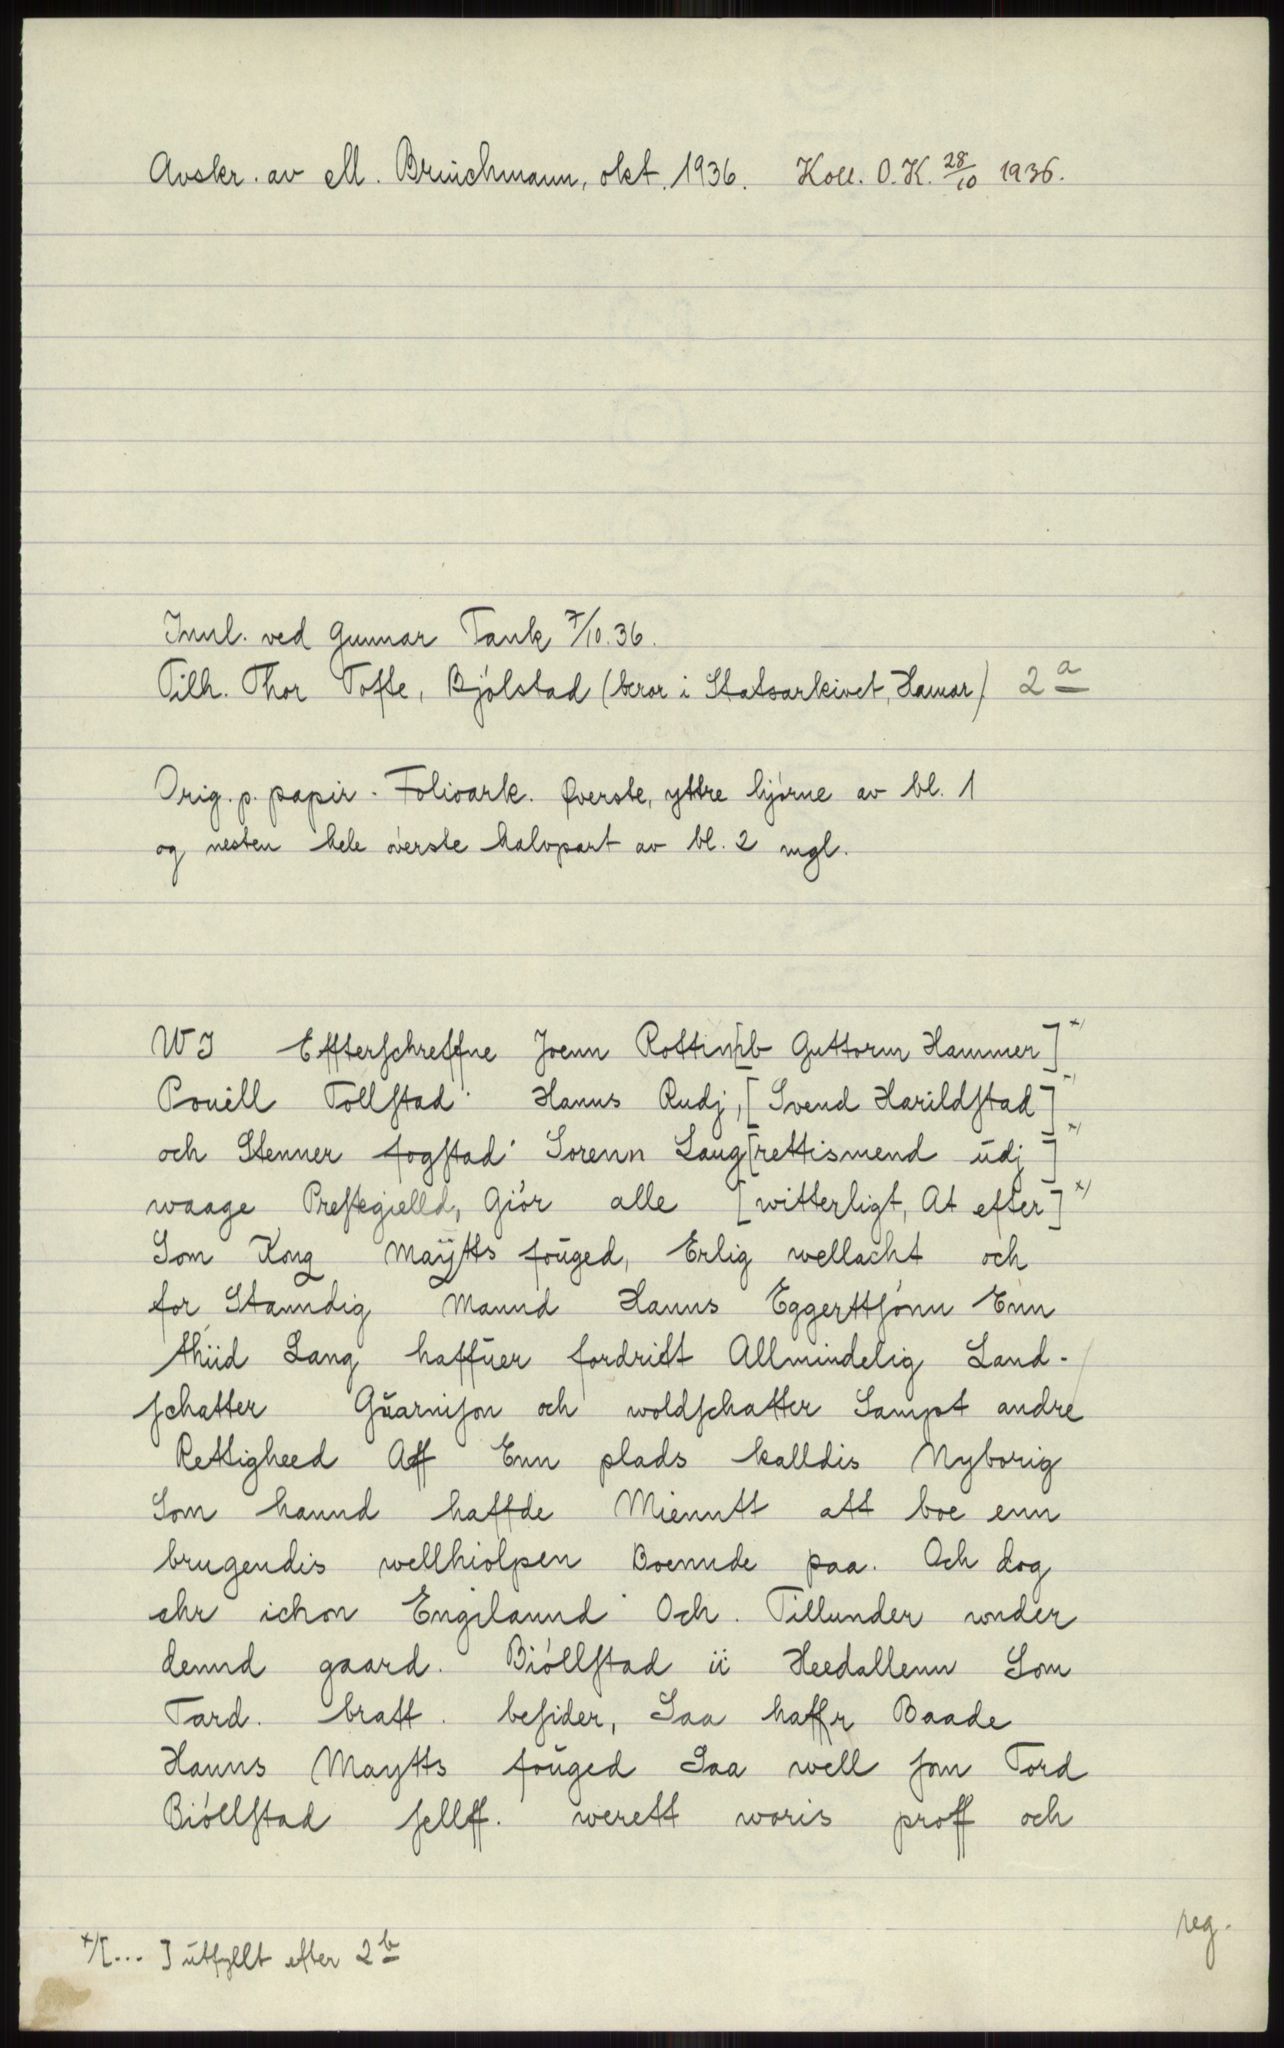 Avskr. av M. Brinchmann, okt. 1936. Koll. O.K. 28/10 1936.
Innl. ved Gunnar Tank 7/10.36.
Tilh. Thor Tofte, Bjólstad (beror i Statsarkivet, Hamar) 2 a
Orig. p. papir. Folioark. Øverste, yttre hjórne av bl. 1
og nesten hele óverste halvpart av bl. 2 mgl.
WJ Effterschreffne Joenn Rottin[b Guttorm Hammer] x)
Pouell Tollstad Hanns Rudj, [Svend Harildstad] x)
och Stenner fogstad Sorenn Laug[rettismend udj] x)
waage Prestegielld, Giór alle [witterligt, At efter] x)
Som Kong Maÿtts fouged, Erlig wellacht och
for Stanndig Mannd Hanns Eggerttsónn Enn
thiid Lang haffuer fordridt Allmindelig Land-
schatter Guarnison och woldschatter Sampt andre
Rettigheed Aff Enn plads kalldis Nyborig
Som hannd haffde Mienntt att boe enn
brugendis wellhiolpen Boennde paa. Och dog
ehr ichon Engilannd Och. Tillunder wnder
dennd gaard. Bióllstad ii Heedallenn Som
Tard. bratt. besider, Saa haffr Baade
Hanns Maytts fouged Saa well som Tord
Bióllstad sellff. werett woris proff och
x)[... ] utfyllt efter 2 b
reg.